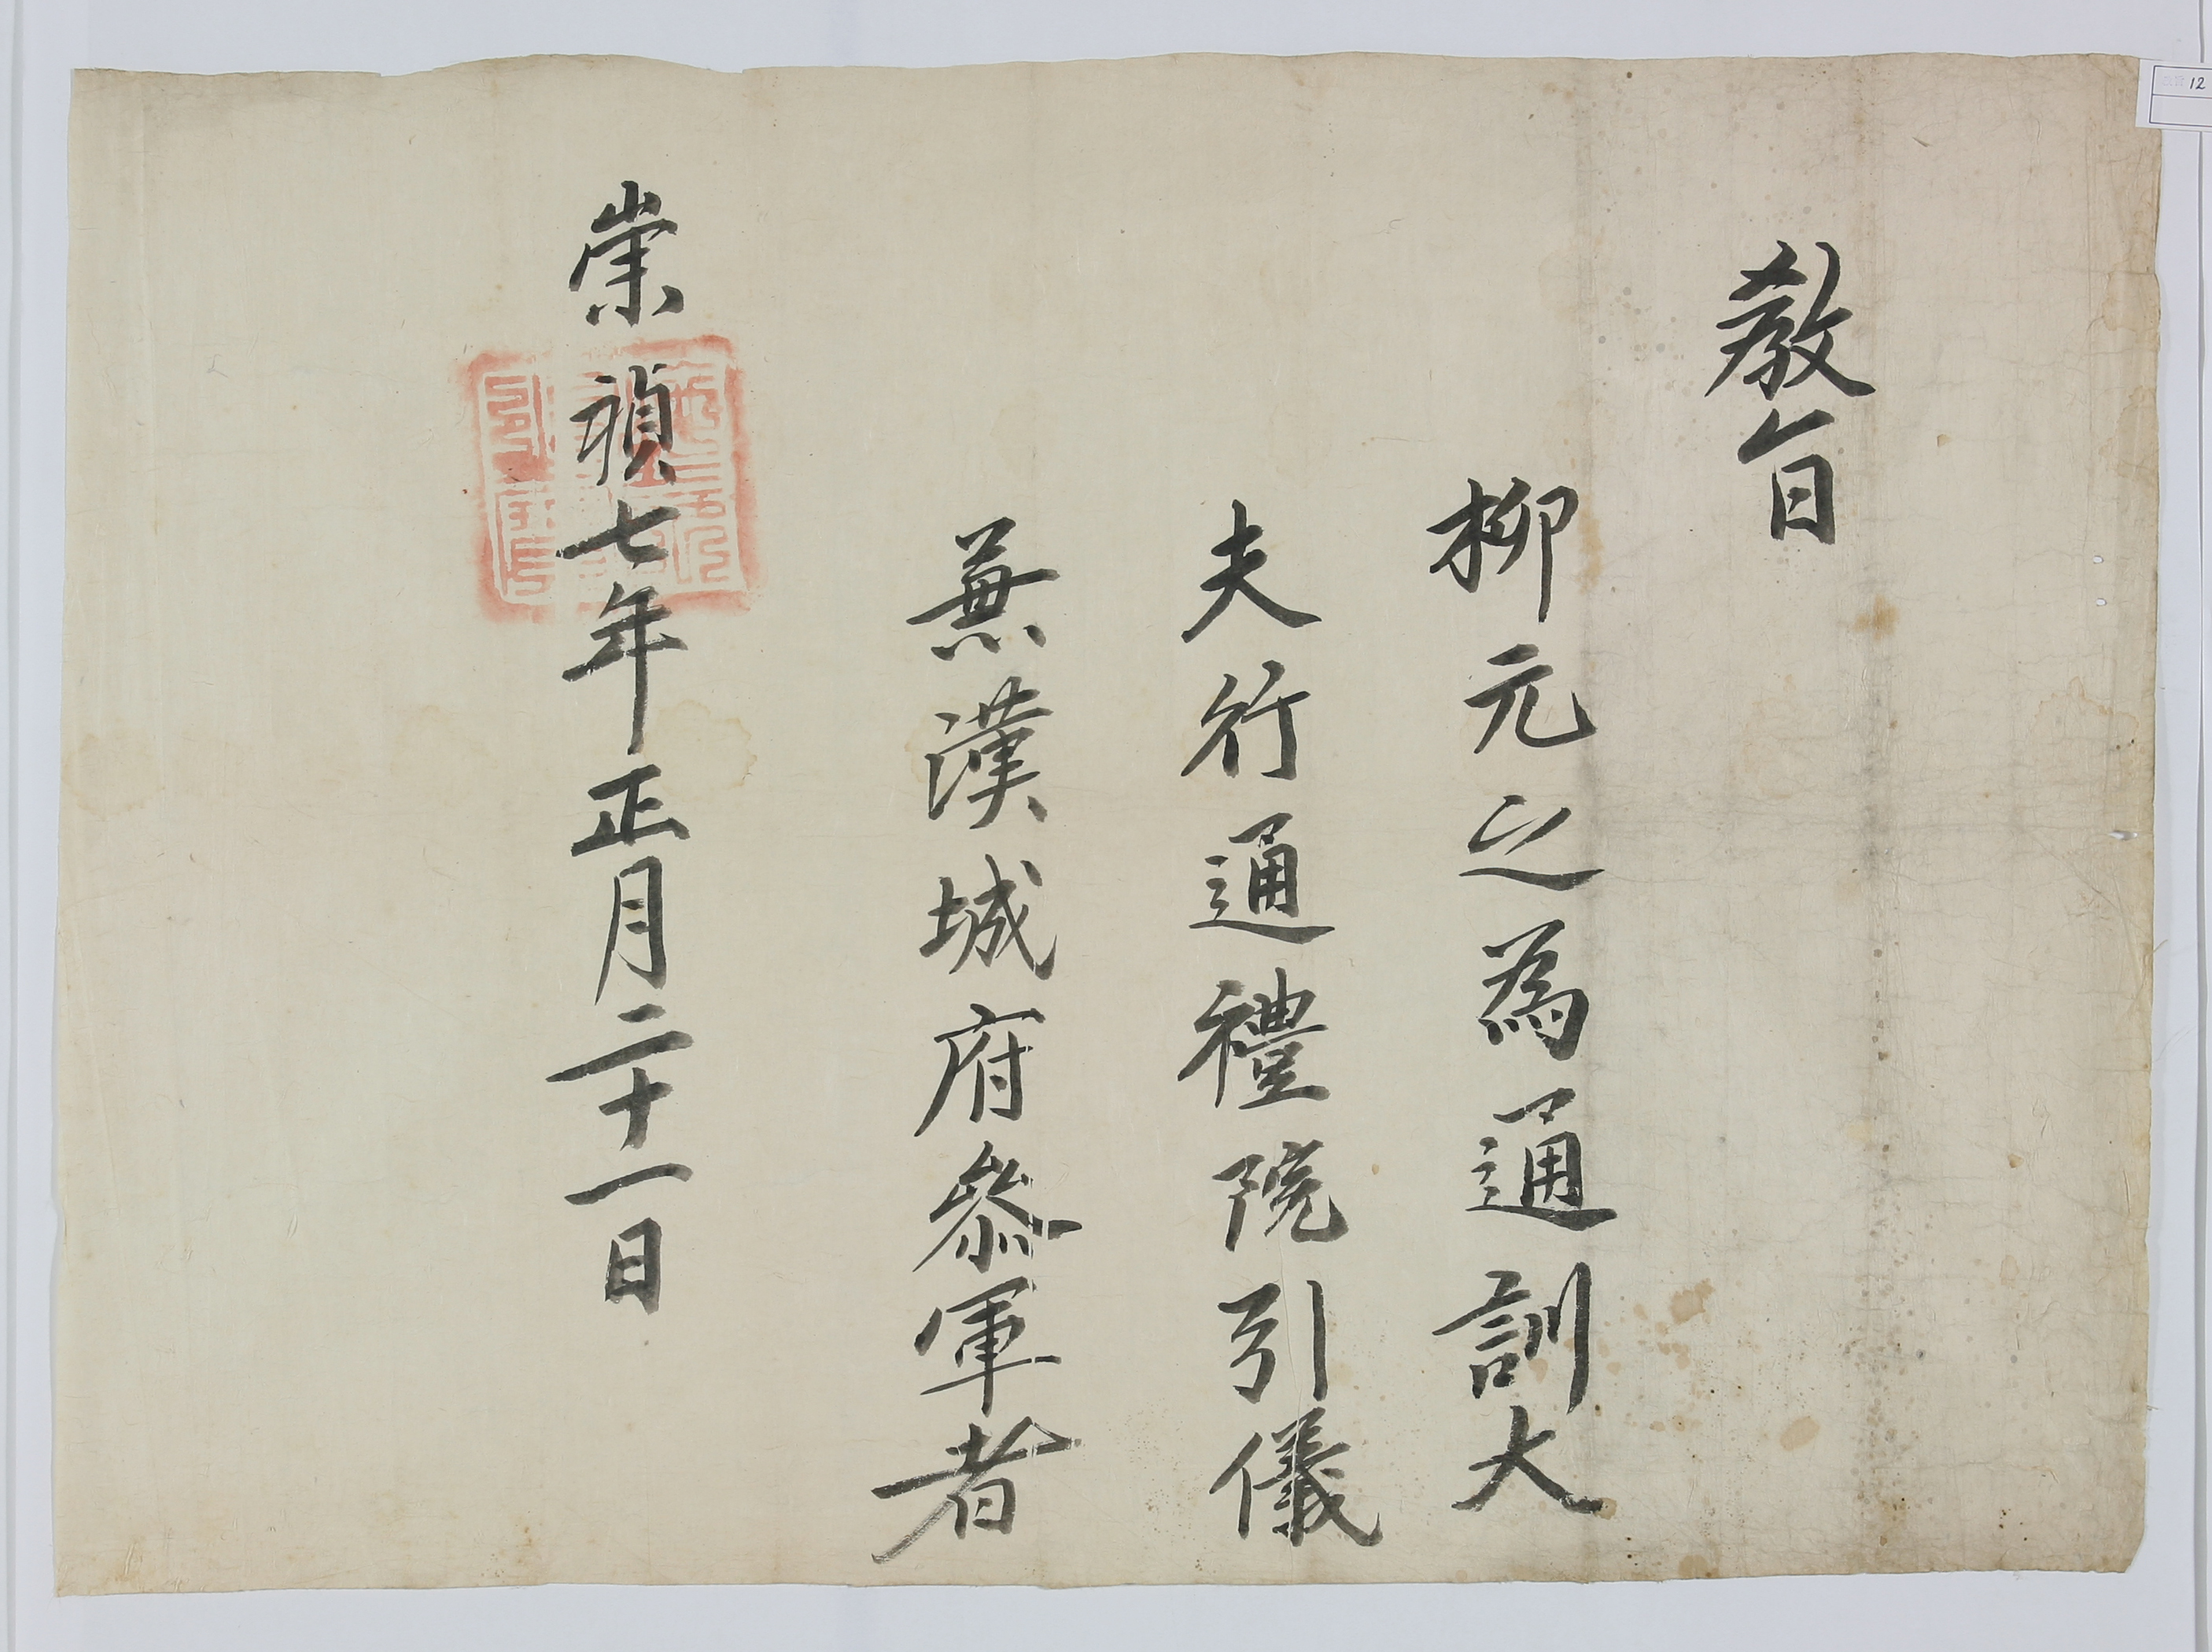 敎旨
柳元之為通訓大
夫行通禮院引儀
兼漢城府參軍者
崇禎七年正月二十一日
12